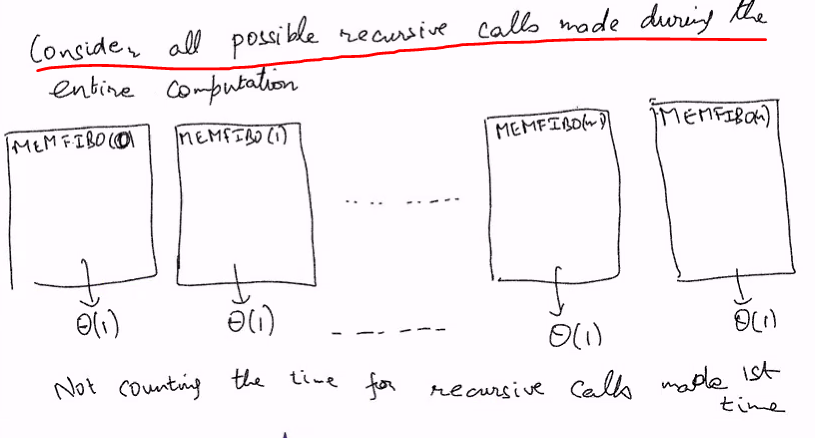 Consider all possible recursive calls made during the
entire computation
MEMFIBO(0) MEMFIBO(1) MEMFIBO(n-1) MEMFIBO(n)
.... ..-----
Θ(1) Θ(1) ------- Θ(1) Θ(1)
Not counting the time for recursive calls made 1st
time